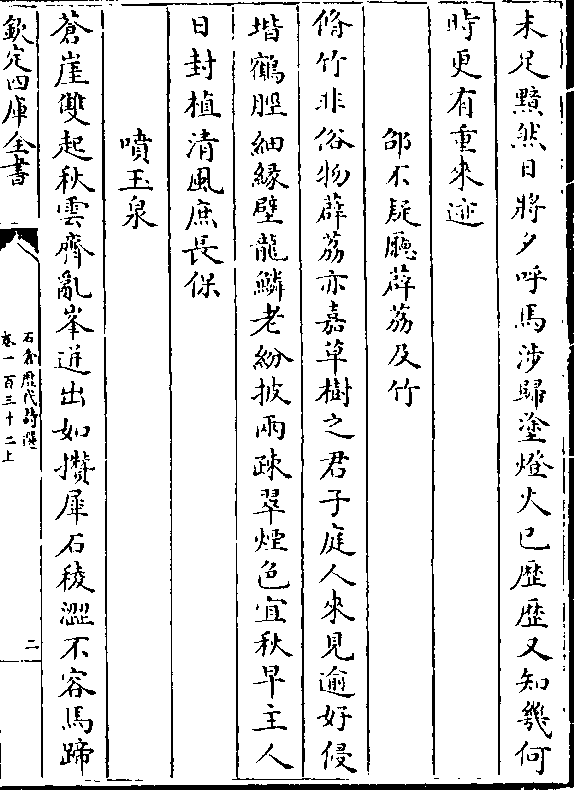 未足黯然日將夕呼馬涉歸塗燈火已歷歷又知幾何
時更有重來迹
邵不疑廳薜荔及竹
脩竹非俗物薜荔亦嘉草樹之君子庭人來見逾好侵
堦鶴脛細緣壁龍鱗老紛披雨疎翠煙色宜秋早主人
日封植清風庶長保
噴玉泉
蒼崖雙起秋雲齊亂峯迸出如攢犀石稜澀不容馬蹄
欽定四庫全書
石倉歷代詩選
卷一百三十二上
二